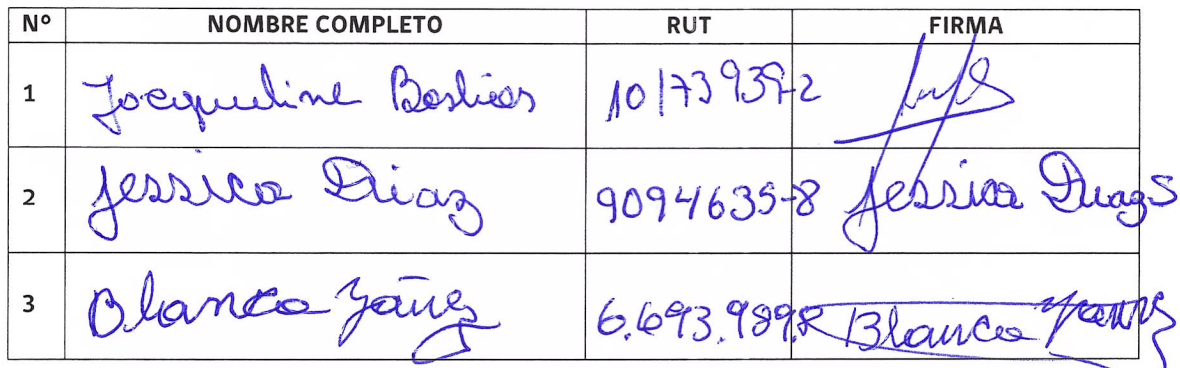 N° NOMBRE COMPLETO RUT FIRMA
1 Jacqueline Bastias 10173939-2
2 Jessica Diaz 9094635-8 Jessica Diaz S
3 Blanca Yáñez 6.693.989-8 Blanca Yañez